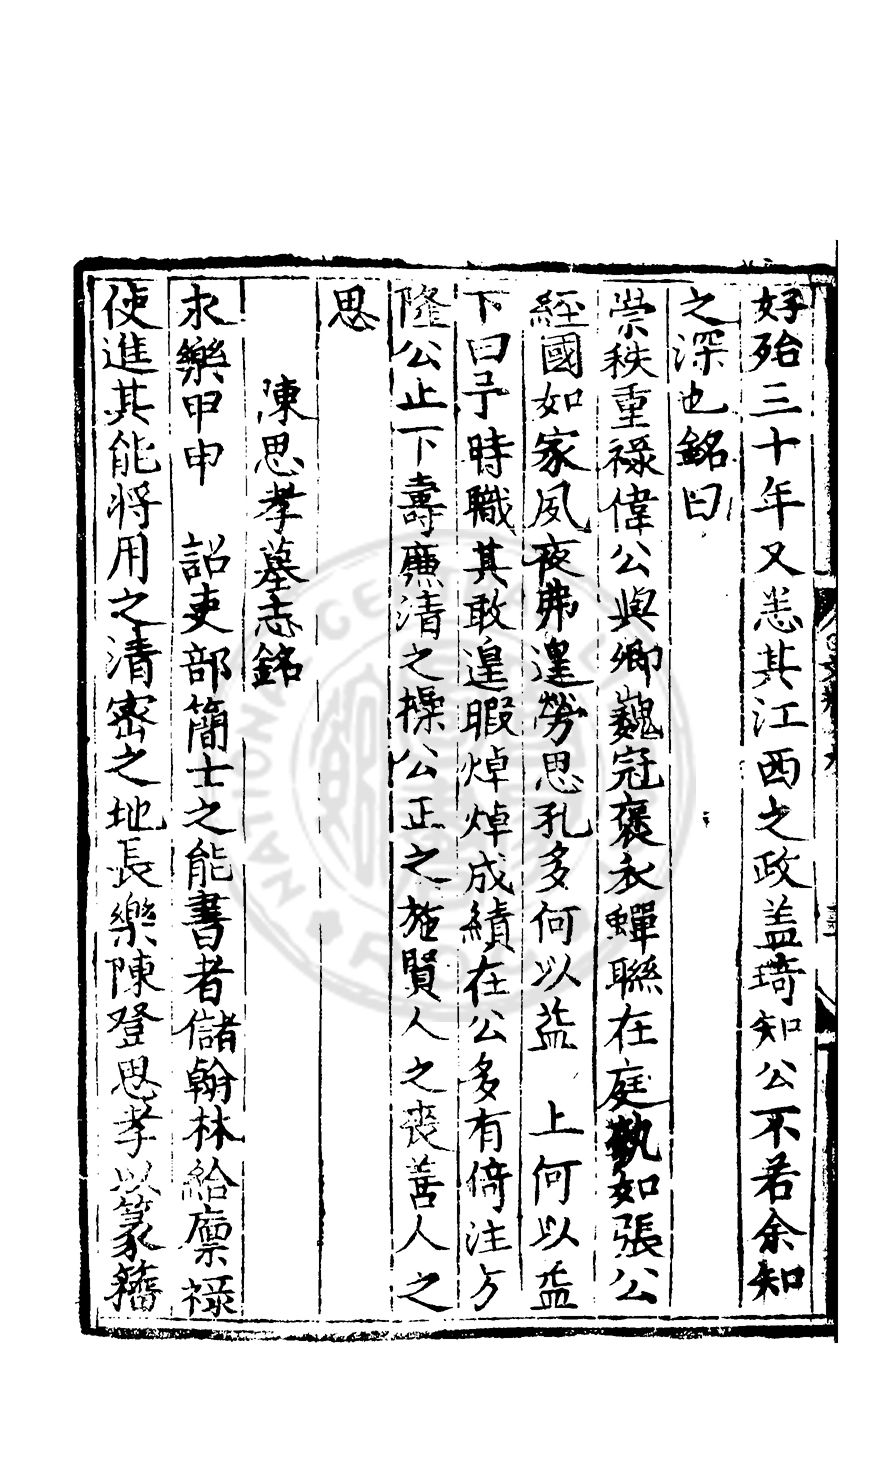 好殆三十年又悉其江西之政盖琦知公不若余知
之深也銘曰
崇秩重禄偉公與卿巍冠褒衣蟬聯在庭執如張公
經國如家夙夜弗遑勞思孔多何以益　上何以益
下曰予時職其敢遑暇焯焯成績在公多有倚注方
隆公止下壽廉清之操公正之施賢人之喪善人之
思
陳思孝墓志銘
永樂甲申　詔吏部簡士之能書者儲翰林給廪祿
使進其能將用之清密之地長樂陳登思孝以篆籀